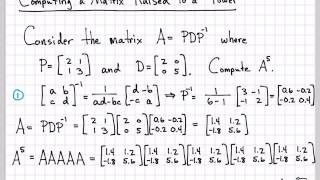 Computing a Matrix Raised to a Power
Consider the matrix A = PDP⁻¹ where
P = [2 1; 1 3] and D = [2 0; 0 5]. Compute A⁵.
① [a b; c d]⁻¹ = 1/(ad-bc) [d -b; -c a] ⇒ P⁻¹ = 1/(6-1) [3 -1; -1 2] = [0.6 -0.2; -0.2 0.4]
A = PDP⁻¹ = [2 1; 1 3] [2 0; 0 5] [0.6 -0.2; -0.2 0.4] = [1.4 1.2; -1.8 5.6]
A⁵ = AAAAA = [1.4 1.2; -1.8 5.6] [1.4 1.2; -1.8 5.6] [1.4 1.2; -1.8 5.6] [1.4 1.2; -1.8 5.6] [1.4 1.2; -1.8 5.6]